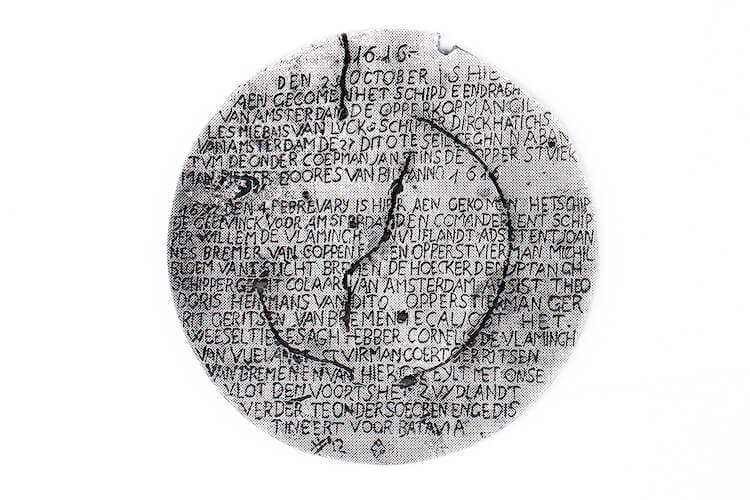 1616-
DEN 25 OCTOBER IS HIE
AEN GECOMEN HET SCHIP DEENDRAGH
VAN AMSTERDAM DE OPPERKOPMAN GIL
LES MIEBAIS VAN LVCK SCHIPPER DIRCK HATICHS
VAN AMSTERDAM DE 27 DITO TE SEIL GEGHN NA BAN
TVM DE ONDER COEPMAN JAN STINS DE OPPER STVIER
MAN PIETER DOORES VAN BIL ANNO 1616
1697 DEN 4 FEBREVARY IS HIER AEN GEKOMEN HET SCHIP
DE GEELVINCK VOOR AMSTERDAM DEN COMANDER ENT SCHIP
PER WILLEM DE VLAMINGH VAN VLIELANDT ADSISTENT JOAN
NES BREMER VAN COPPENH EN OPPERSTVIERMAN MICHIL
BLOEM VAN STICHT BREMEN DE HOECKER DE NYPTANGH
SCHIPPER GERRIT COLAART VAN AMSTERDAM ASSIST THEO
DORIS HERMANS VAN DITO OPPERSTIERMAN GER
RIT GERITSEN VAN BREMEN ECALIOOT HET
WEESELTIE GESAGH HEBBER CORNELIS DE VLAMINGH
VAN VLIELANDT STVIRMAN COERT GERRITSEN
VAN BREMEN EN VAN HIER GESEYLT MET ONSE
VLOT DEN VOORTS HET ZVYDLANDT
VERDER TE ONDERSOECKEN EN GEDIS
TINEERT VOOR BATAVIA
#12